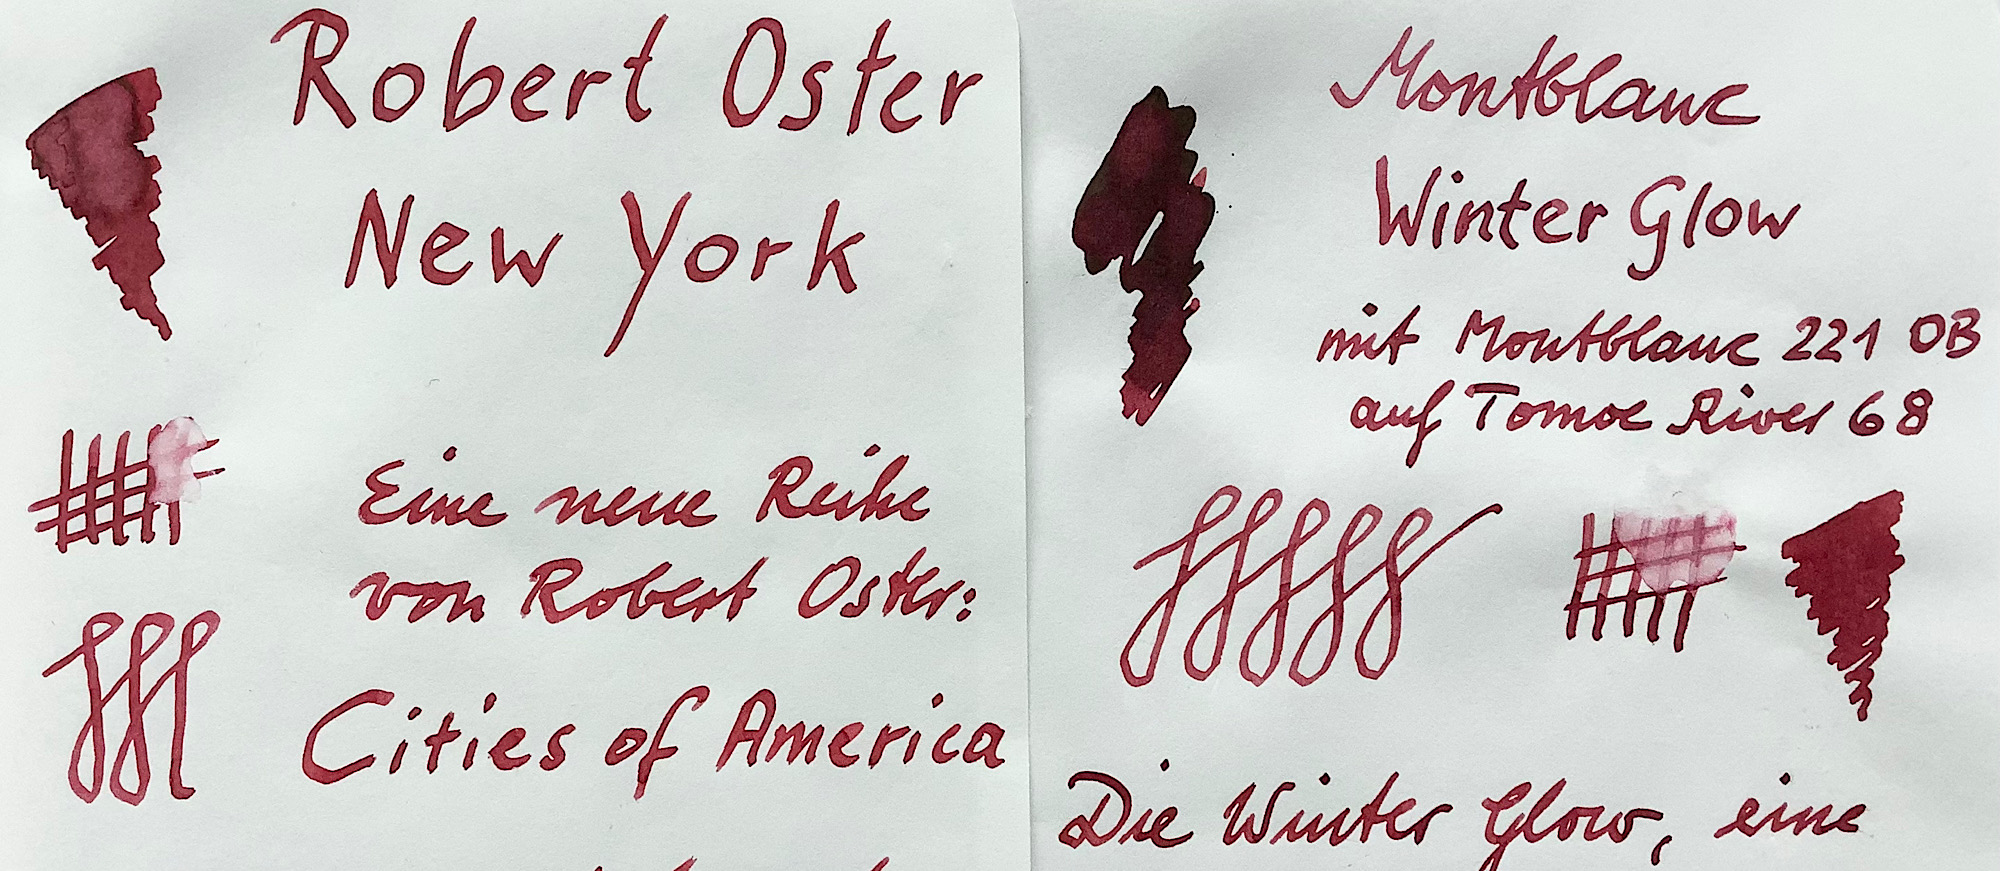 Robert Oster
New York
Eine neue Reihe
von Robert Oster:
Cities of America
Montblanc
Winter Glow
mit Montblanc 221 OB
auf Tomoe River 68
Die Winter Glow, eine